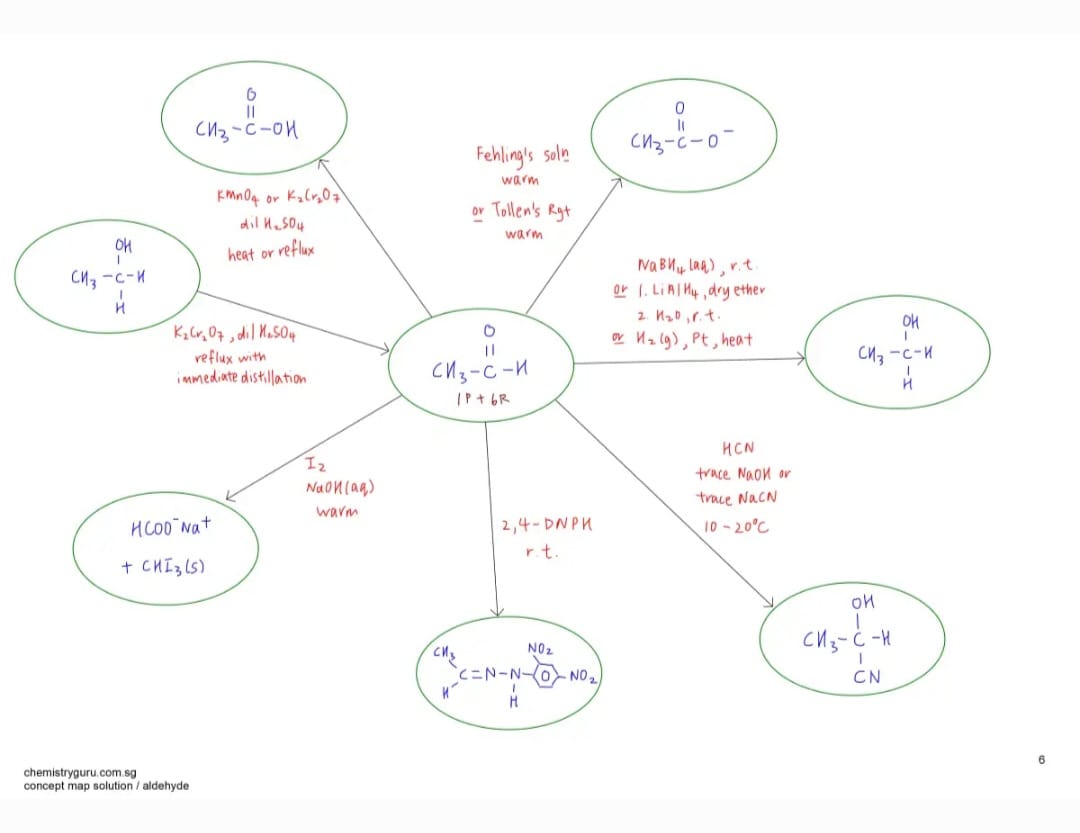 O
||
CH3-C-OH
KMnO4 or K2Cr2O7
dil H2SO4
heat or reflux
Fehling's soln
warm
or Tollen's Rgt
warm
O
||
CH3-C-O-
OH
|
CH3-C-H
|
H
K2Cr2O7, dil H2SO4
reflux with
immediate distillation
O
||
CH3-C-H
1P + 6R
NaBH4 (aq), r.t.
or 1. LiAlH4, dry ether
2. H2O, r.t.
or H2(g), Pt, heat
OH
|
CH3-C-H
|
H
I2
NaOH(aq)
warm
HCOO-Na+
+ CHI3(s)
2,4-DNPH
r.t.
CH3 NO2
C=N-N- -NO2
H |
H
HCN
trace NaOH or
trace NaCN
10 - 20°C
OH
|
CH3-C-H
|
CN
6
chemistryguru.com.sg
concept map solution / aldehyde